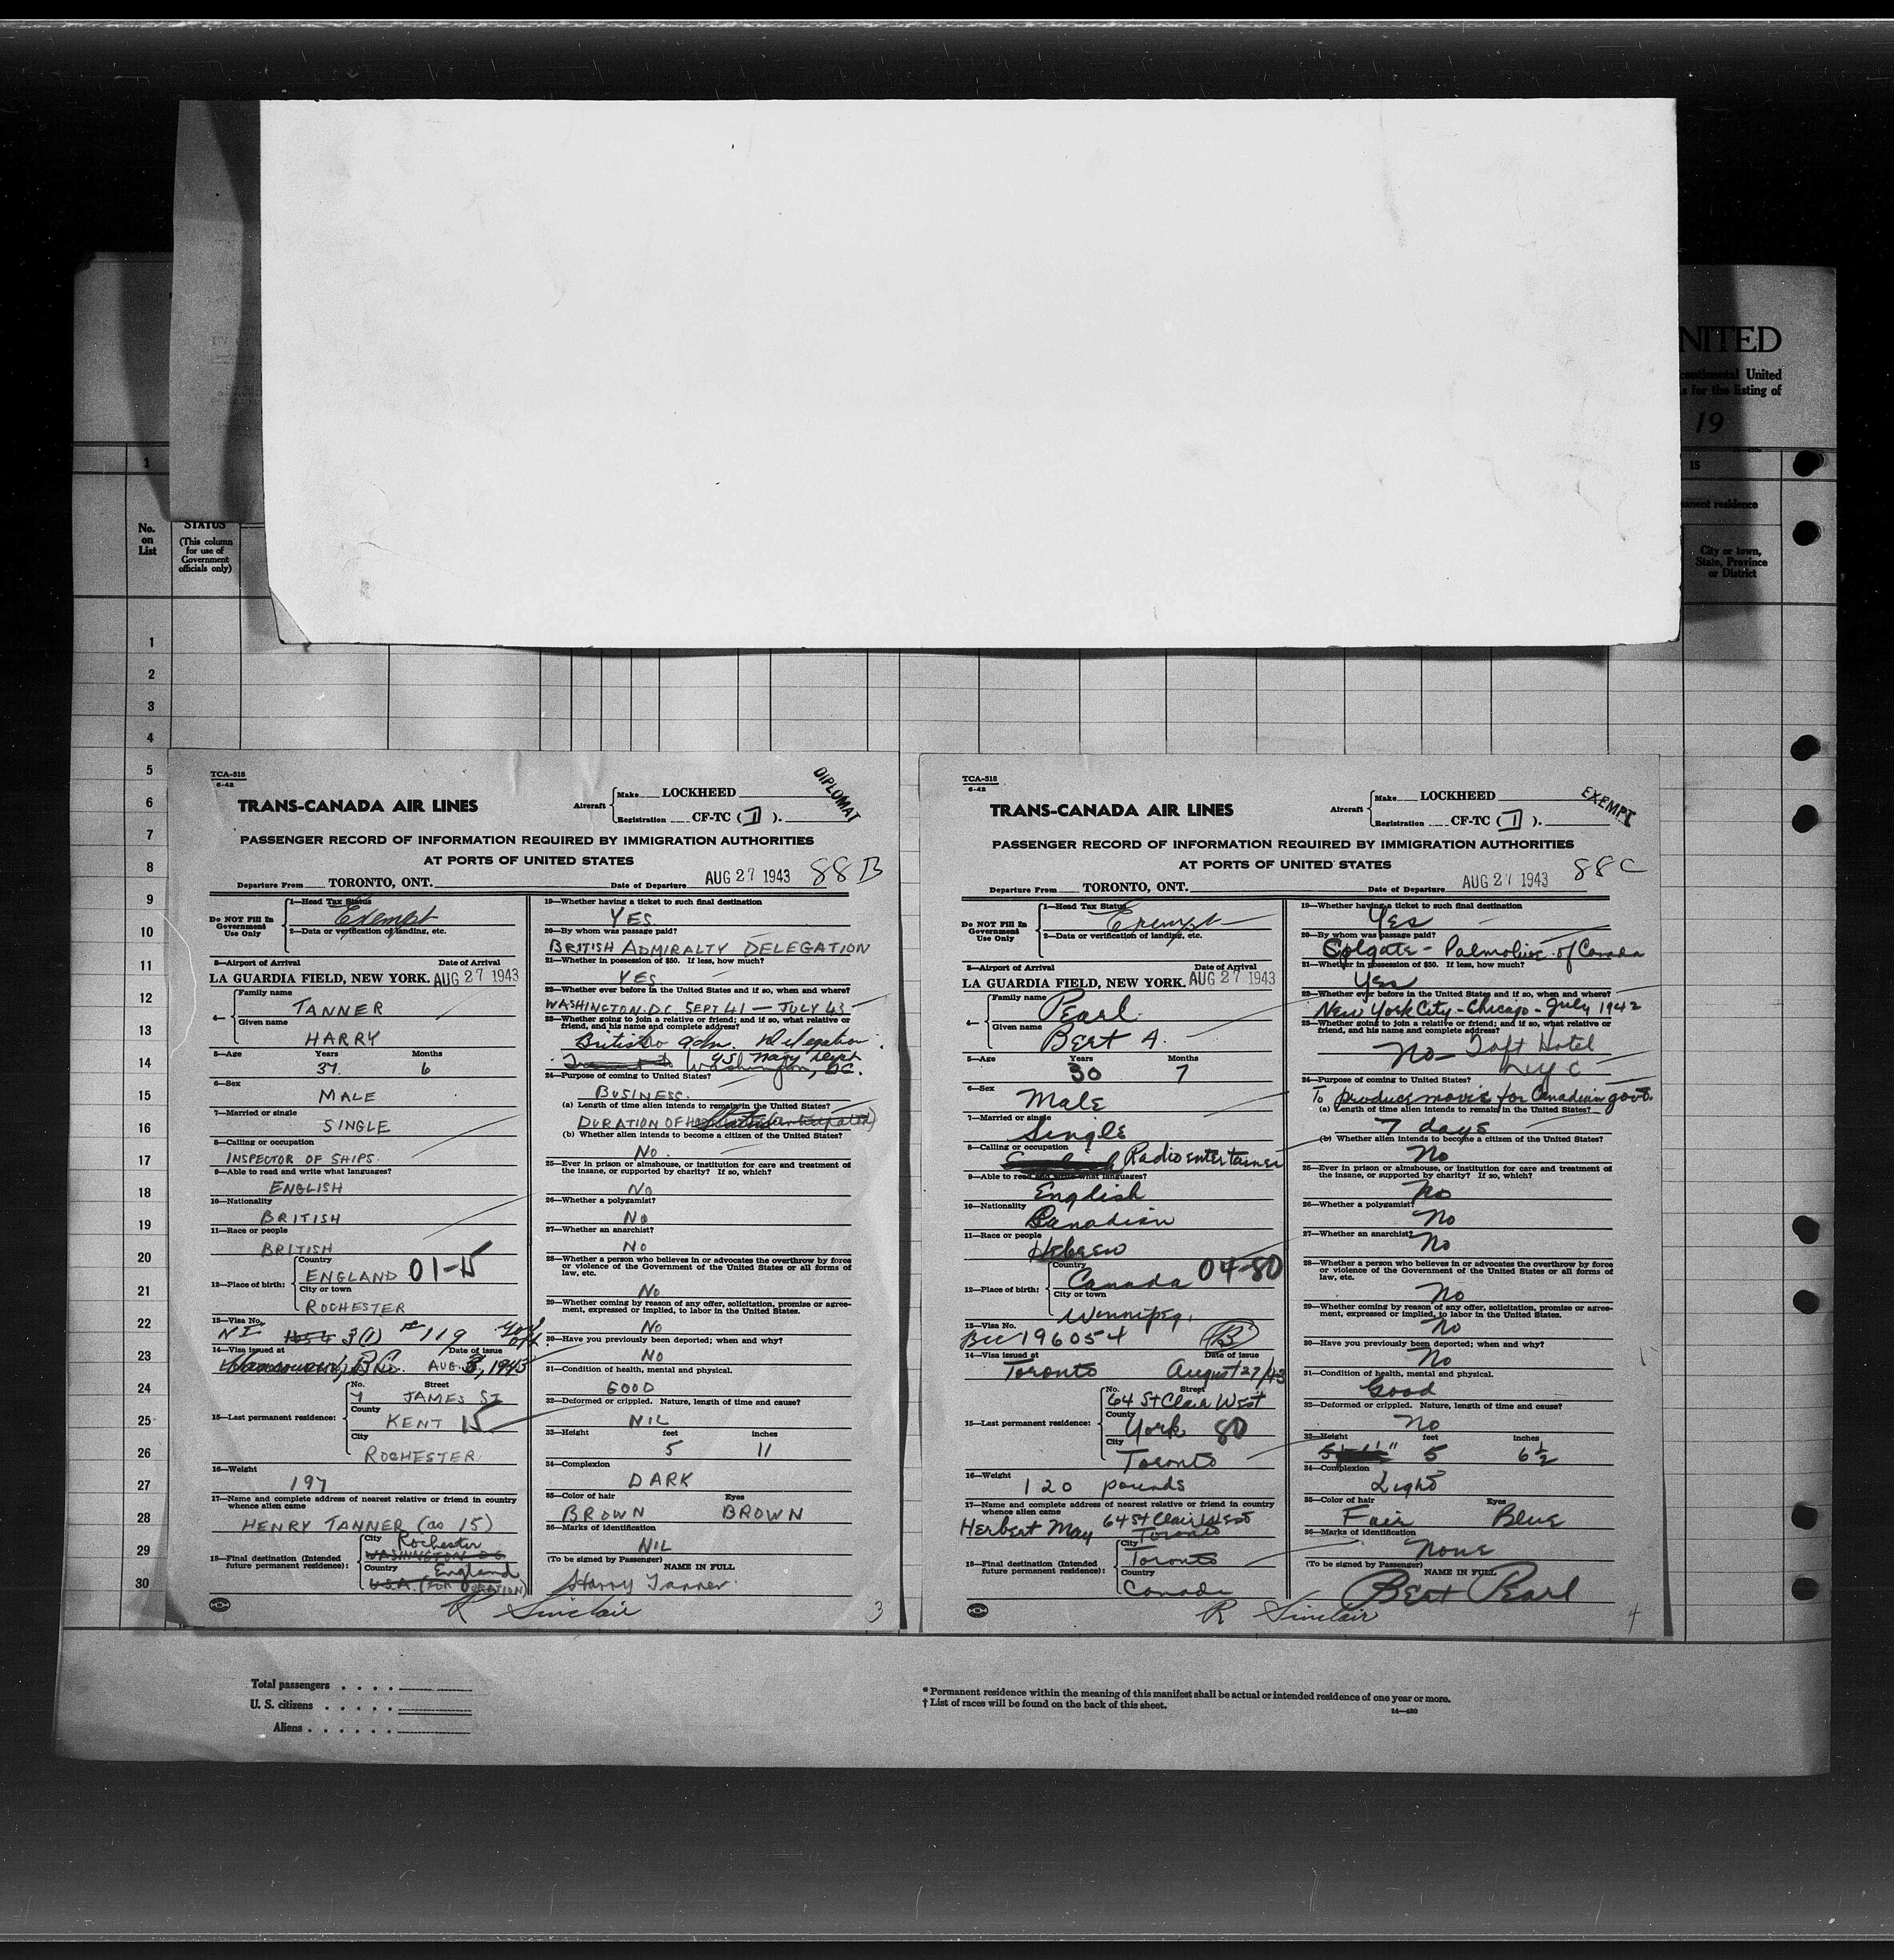 NITED
continental United
s for the listing of
19
1
15
manent residence
No.
on
List
STATUS
(This column
for use of
Government
officials only)
City or town,
State, Province
or District
1
2
3
4
5
6
7
8
9
10
11
12
13
14
15
16
17
18
19
20
21
22
23
24
25
26
27
28
29
30
TCA-518
6-42
TRANS-CANADA AIR LINES
Aircraft
Make LOCKHEED
Registration CF-TC (I).
DIPLOMAT
PASSENGER RECORD OF INFORMATION REQUIRED BY IMMIGRATION AUTHORITIES
AT PORTS OF UNITED STATES
88B
Departure From TORONTO, ONT.
Date of Departure AUG 27 1943
Do NOT Fill In
Government
Use Only
1—Head Tax Status
Exempt
2—Data or verification of landing, etc.
3—Airport of Arrival
Date of Arrival
LA GUARDIA FIELD, NEW YORK. AUG 27 1943
4—
Family name
TANNER
Given name
HARRY
5—Age Years Months
37. 6
6—Sex
MALE
7—Married or single
SINGLE
8—Calling or occupation
INSPECTOR OF SHIPS.
9—Able to read and write what languages?
ENGLISH
10—Nationality
BRITISH
11—Race or people
BRITISH
12—Place of birth:
Country
ENGLAND 01-15
City or town
ROCHESTER
13—Visa No.
3(1) #119
14—Visa issued at Date of issue
AUG. 3, 1943
15—Last permanent residence:
No. Street
7 JAMES ST
County
KENT 15
City
ROCHESTER
16—Weight
197
17—Name and complete address of nearest relative or friend in country
whence alien came
HENRY TANNER (as 15)
18—Final destination (Intended
future permanent residence):
City Rochester
WASHINGTON D.C.
Country England
U.S.A. (FOR DURATION)
19—Whether having a ticket to such final destination
YES
20—By whom was passage paid?
BRITISH ADMIRALTY DELEGATION
21—Whether in possession of $50. If less, how much?
YES
22—Whether ever before in the United States and if so, when and where?
WASHINGTON.D.C. SEPT 41 — JULY 43
23—Whether going to join a relative or friend; and if so, what relative or
friend, and his name and complete address?
British Adm. Delegation.
US Navy Dept
Washington, D.C.
24—Purpose of coming to United States?
BUSINESS.
(a) Length of time alien intends to remain in the United States?
DURATION OF
(b) Whether alien intends to become a citizen of the United States?
NO.
25—Ever in prison or almshouse, or institution for care and treatment of
the insane, or supported by charity? If so, which?
NO
26—Whether a polygamist?
NO
27—Whether an anarchist?
NO
28—Whether a person who believes in or advocates the overthrow by force
or violence of the Government of the United States or all forms of
law, etc.
NO
29—Whether coming by reason of any offer, solicitation, promise or agree-
ment, expressed or implied, to labor in the United States.
NO
30—Have you previously been deported; when and why?
NO
31—Condition of health, mental and physical.
GOOD
32—Deformed or crippled. Nature, length of time and cause?
NIL
33—Height feet inches
5 11
34—Complexion
DARK
35—Color of hair Eyes
BROWN BROWN
36—Marks of identification
NIL
(To be signed by Passenger) NAME IN FULL
Harry Tanner.
R Sinclair
3
TCA-518
6-42
TRANS-CANADA AIR LINES
Aircraft
Make LOCKHEED
Registration CF-TC (I).
EXEMPT
PASSENGER RECORD OF INFORMATION REQUIRED BY IMMIGRATION AUTHORITIES
AT PORTS OF UNITED STATES
88C
Departure From TORONTO, ONT.
Date of Departure AUG 27 1943
Do NOT Fill In
Government
Use Only
1—Head Tax Status
Exempt
2—Data or verification of landing, etc.
3—Airport of Arrival
Date of Arrival
LA GUARDIA FIELD, NEW YORK. AUG 27 1943
4—
Family name
Pearl
Given name
Bert A.
5—Age Years Months
30 7
6—Sex
Male
7—Married or single
Single
8—Calling or occupation
Radio entertainer
9—Able to read and write what languages?
English
10—Nationality
Canadian
11—Race or people
Hebrew
12—Place of birth:
Country
Canada 04-80
City or town
Winnipeg.
13—Visa No.
196054
14—Visa issued at Date of issue
Toronto August 27/43
15—Last permanent residence:
No. Street
64 St Clair West
County
York 80
City
Toronto
16—Weight
120 pounds
17—Name and complete address of nearest relative or friend in country
whence alien came
Herbert May 64 St Clair West
Toronto
18—Final destination (Intended
future permanent residence):
City
Toronto
Country
Canada
19—Whether having a ticket to such final destination
Yes
20—By whom was passage paid?
Colgate - Palmolive of Canada
21—Whether in possession of $50. If less, how much?
Yes
22—Whether ever before in the United States and if so, when and where?
New York City - Chicago - July 1942
23—Whether going to join a relative or friend; and if so, what relative or
friend, and his name and complete address?
No - Taft Hotel
NYC
24—Purpose of coming to United States?
To produce movie for Canadian govt.
(a) Length of time alien intends to remain in the United States?
7 days
(b) Whether alien intends to become a citizen of the United States?
No
25—Ever in prison or almshouse, or institution for care and treatment of
the insane, or supported by charity? If so, which?
No
26—Whether a polygamist?
No
27—Whether an anarchist?
No
28—Whether a person who believes in or advocates the overthrow by force
or violence of the Government of the United States or all forms of
law, etc.
No
29—Whether coming by reason of any offer, solicitation, promise or agree-
ment, expressed or implied, to labor in the United States.
No
30—Have you previously been deported; when and why?
No
31—Condition of health, mental and physical.
Good
32—Deformed or crippled. Nature, length of time and cause?
No
33—Height feet inches
5 6½
34—Complexion
Light
35—Color of hair Eyes
Fair Blue
36—Marks of identification
None
(To be signed by Passenger) NAME IN FULL
Bert Pearl
R Sinclair
4
Total passengers
U. S. citizens
Aliens
* Permanent residence within the meaning of this manifest shall be actual or intended residence of one year or more.
† List of races will be found on the back of this sheet.
14—420